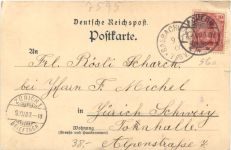 7595
Deutsche Reichspost
Postkarte.
An Frl. Rösli Scharch
bei Herrn F. Michel
in Zürich Schweiz
Tonhalle
Wohnung
(Straße und Hausnummer)
38. Alpenstrasse 7
ZÜRICH
BRIEFTRÄGER